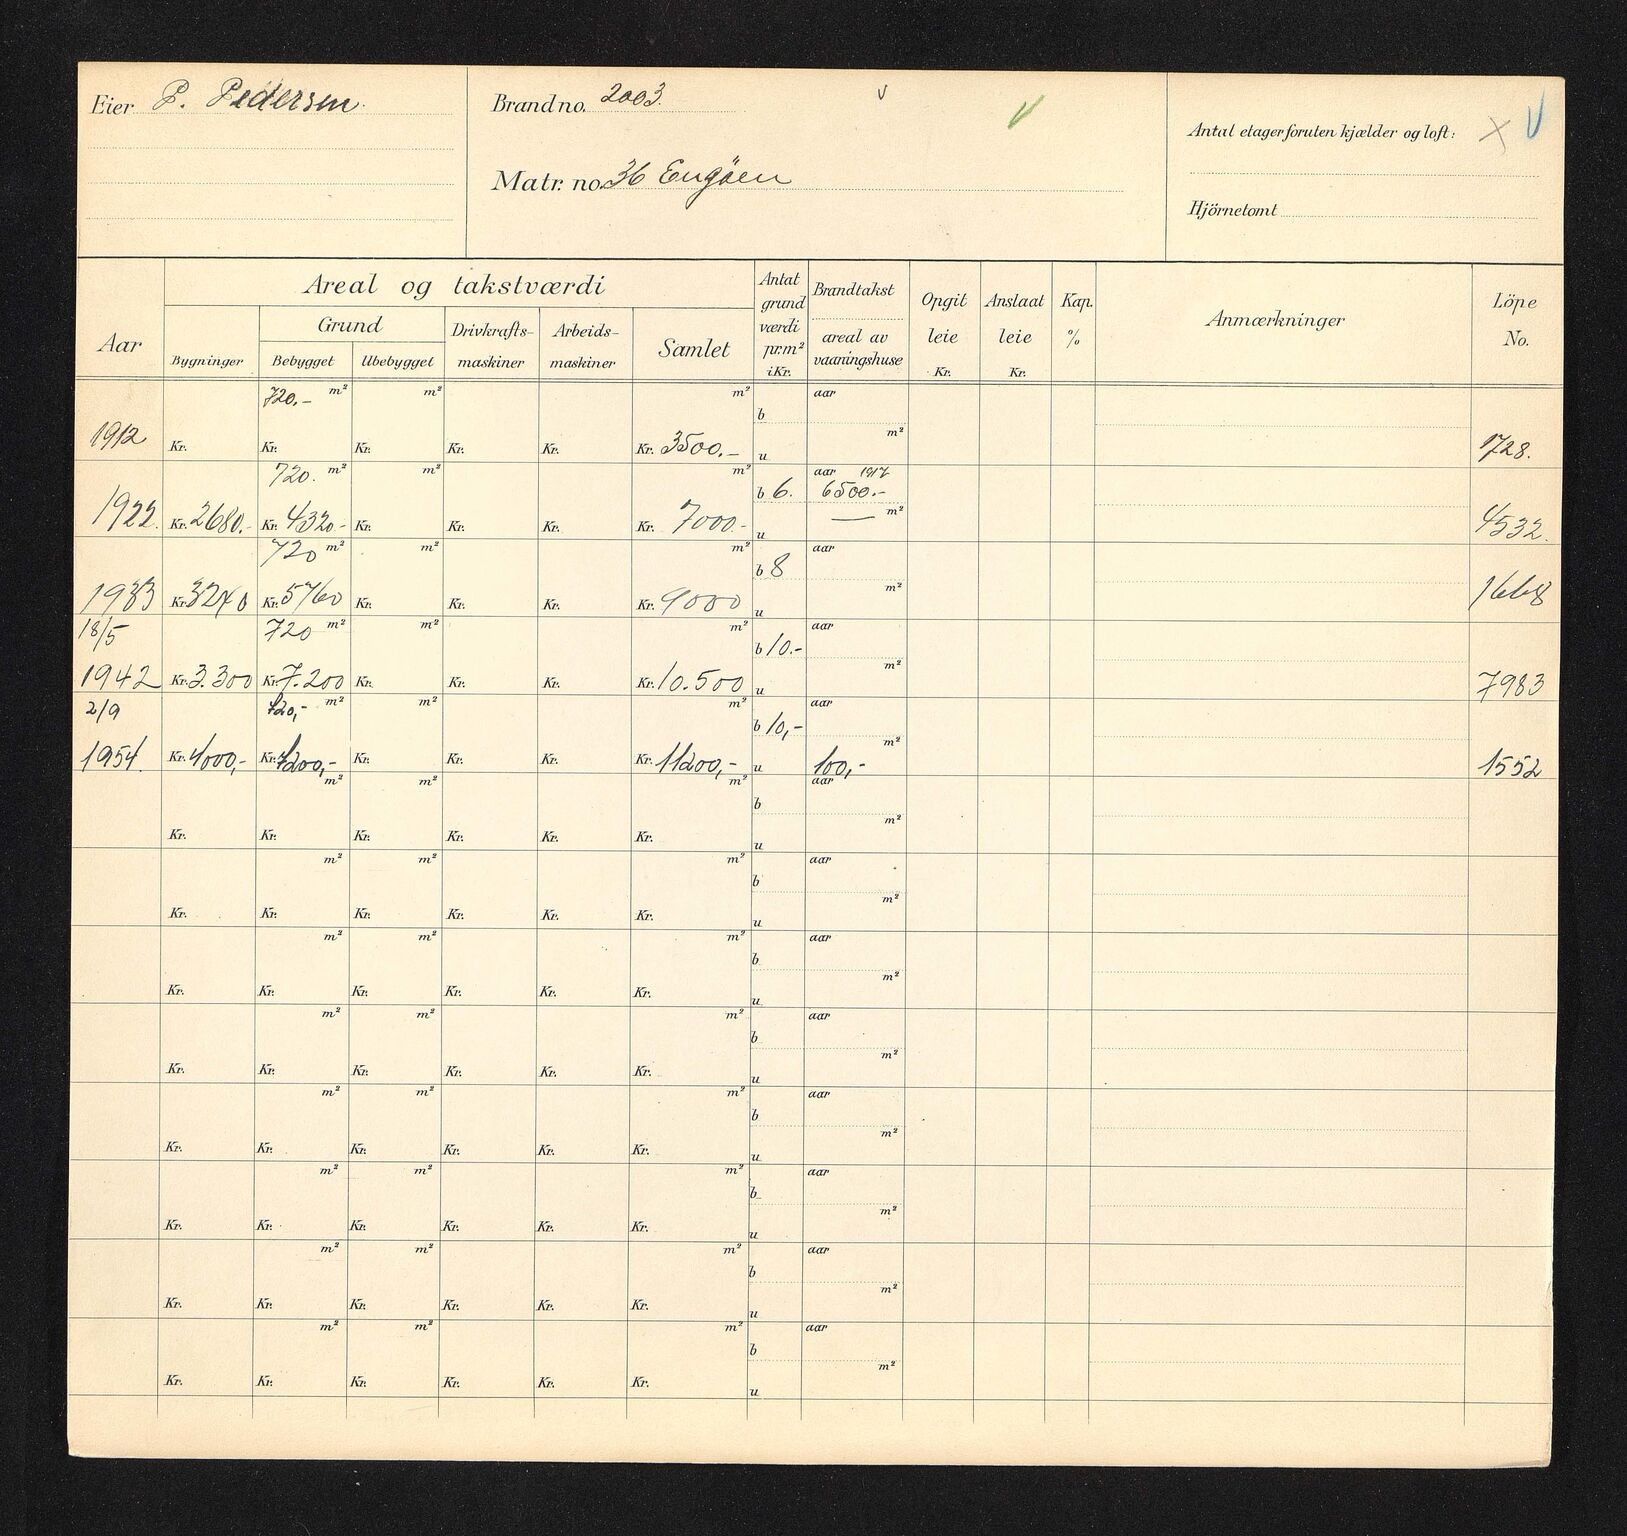 Eier P. Pedersen.
Brand no. 2003.
Matr. no. 36 Engøen
Antal etager foruten kjælder og loft:
Hjörnetomt
Aar
Areal og takstværdi
Bygninger
Grund
Bebygget
Ubebygget
Drivkrafts-
maskiner
Arbeids-
maskiner
Samlet
Antat
grund
værdi
pr.m²
i Kr.
Brandtakst
areal av
vaaningshuse
Opgit
leie
Kr.
Anslaat
leie
Kr.
Kap.
%
Anmærkninger
Löpe
No.
720.- m² m² m² b aar
1912 Kr. Kr. Kr. Kr. Kr. Kr. 3500.- u m² 1728.
720. m² m² m² b 6. aar 1917
6500.-
1922. Kr. 2680.- Kr. 4320- Kr. Kr. Kr. Kr. 7000.- u — m² 4532.
720 m² m² m² b 8 aar
1933 Kr. 3240 Kr. 5760 Kr. Kr. Kr. Kr. 9000 u m² 1668
18/5 720 m² m² m² b 10.- aar
1942 Kr. 3.300 Kr. 7.200 Kr. Kr. Kr. Kr. 10.500 u m² 7983
2/9 720,- m² m² m² b 10,- aar
1954. Kr. 4000,- Kr. 7200,- Kr. Kr. Kr. Kr. 11200,- u 100,- m² 1552
m² m² m² b aar
Kr. Kr. Kr. Kr. Kr. Kr. u m²
m² m² m² b aar
Kr. Kr. Kr. Kr. Kr. Kr. u m²
m² m² m² b aar
Kr. Kr. Kr. Kr. Kr. Kr. u m²
m² m² m² b aar
Kr. Kr. Kr. Kr. Kr. Kr. u m²
m² m² m² b aar
Kr. Kr. Kr. Kr. Kr. Kr. u m²
m² m² m² b aar
Kr. Kr. Kr. Kr. Kr. Kr. u m²
m² m² m² b aar
Kr. Kr. Kr. Kr. Kr. Kr. u m²
m² m² m² b aar
Kr. Kr. Kr. Kr. Kr. Kr. u m²